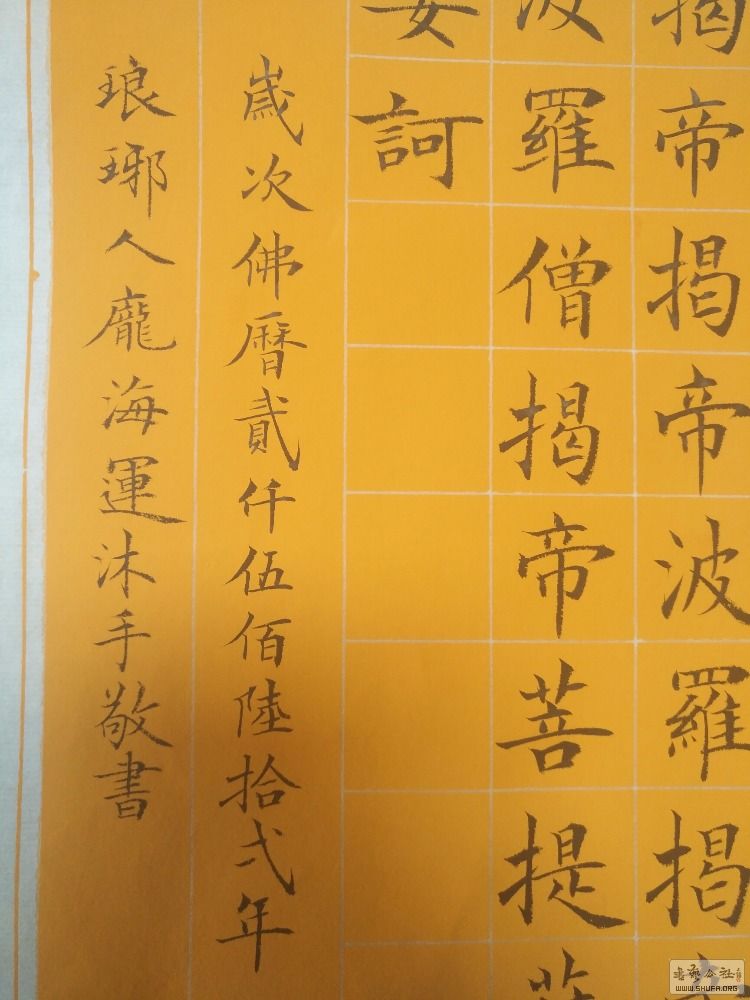 揭帝揭帝波羅揭
波羅僧揭帝菩提
訶
歲次佛曆貳仟伍佰陸拾弍年
琅琊人龐海運沐手敬書
書藝公社
WWW.SHUFA.ORG